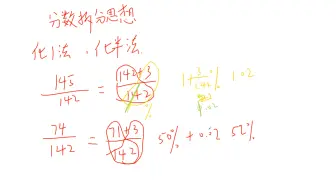 分数拆分思想
化1法、化半法
145/142 = (142+3)/142 1+3/142% 1.02
74/142 = (71+3)/142 50%+0.02 52%